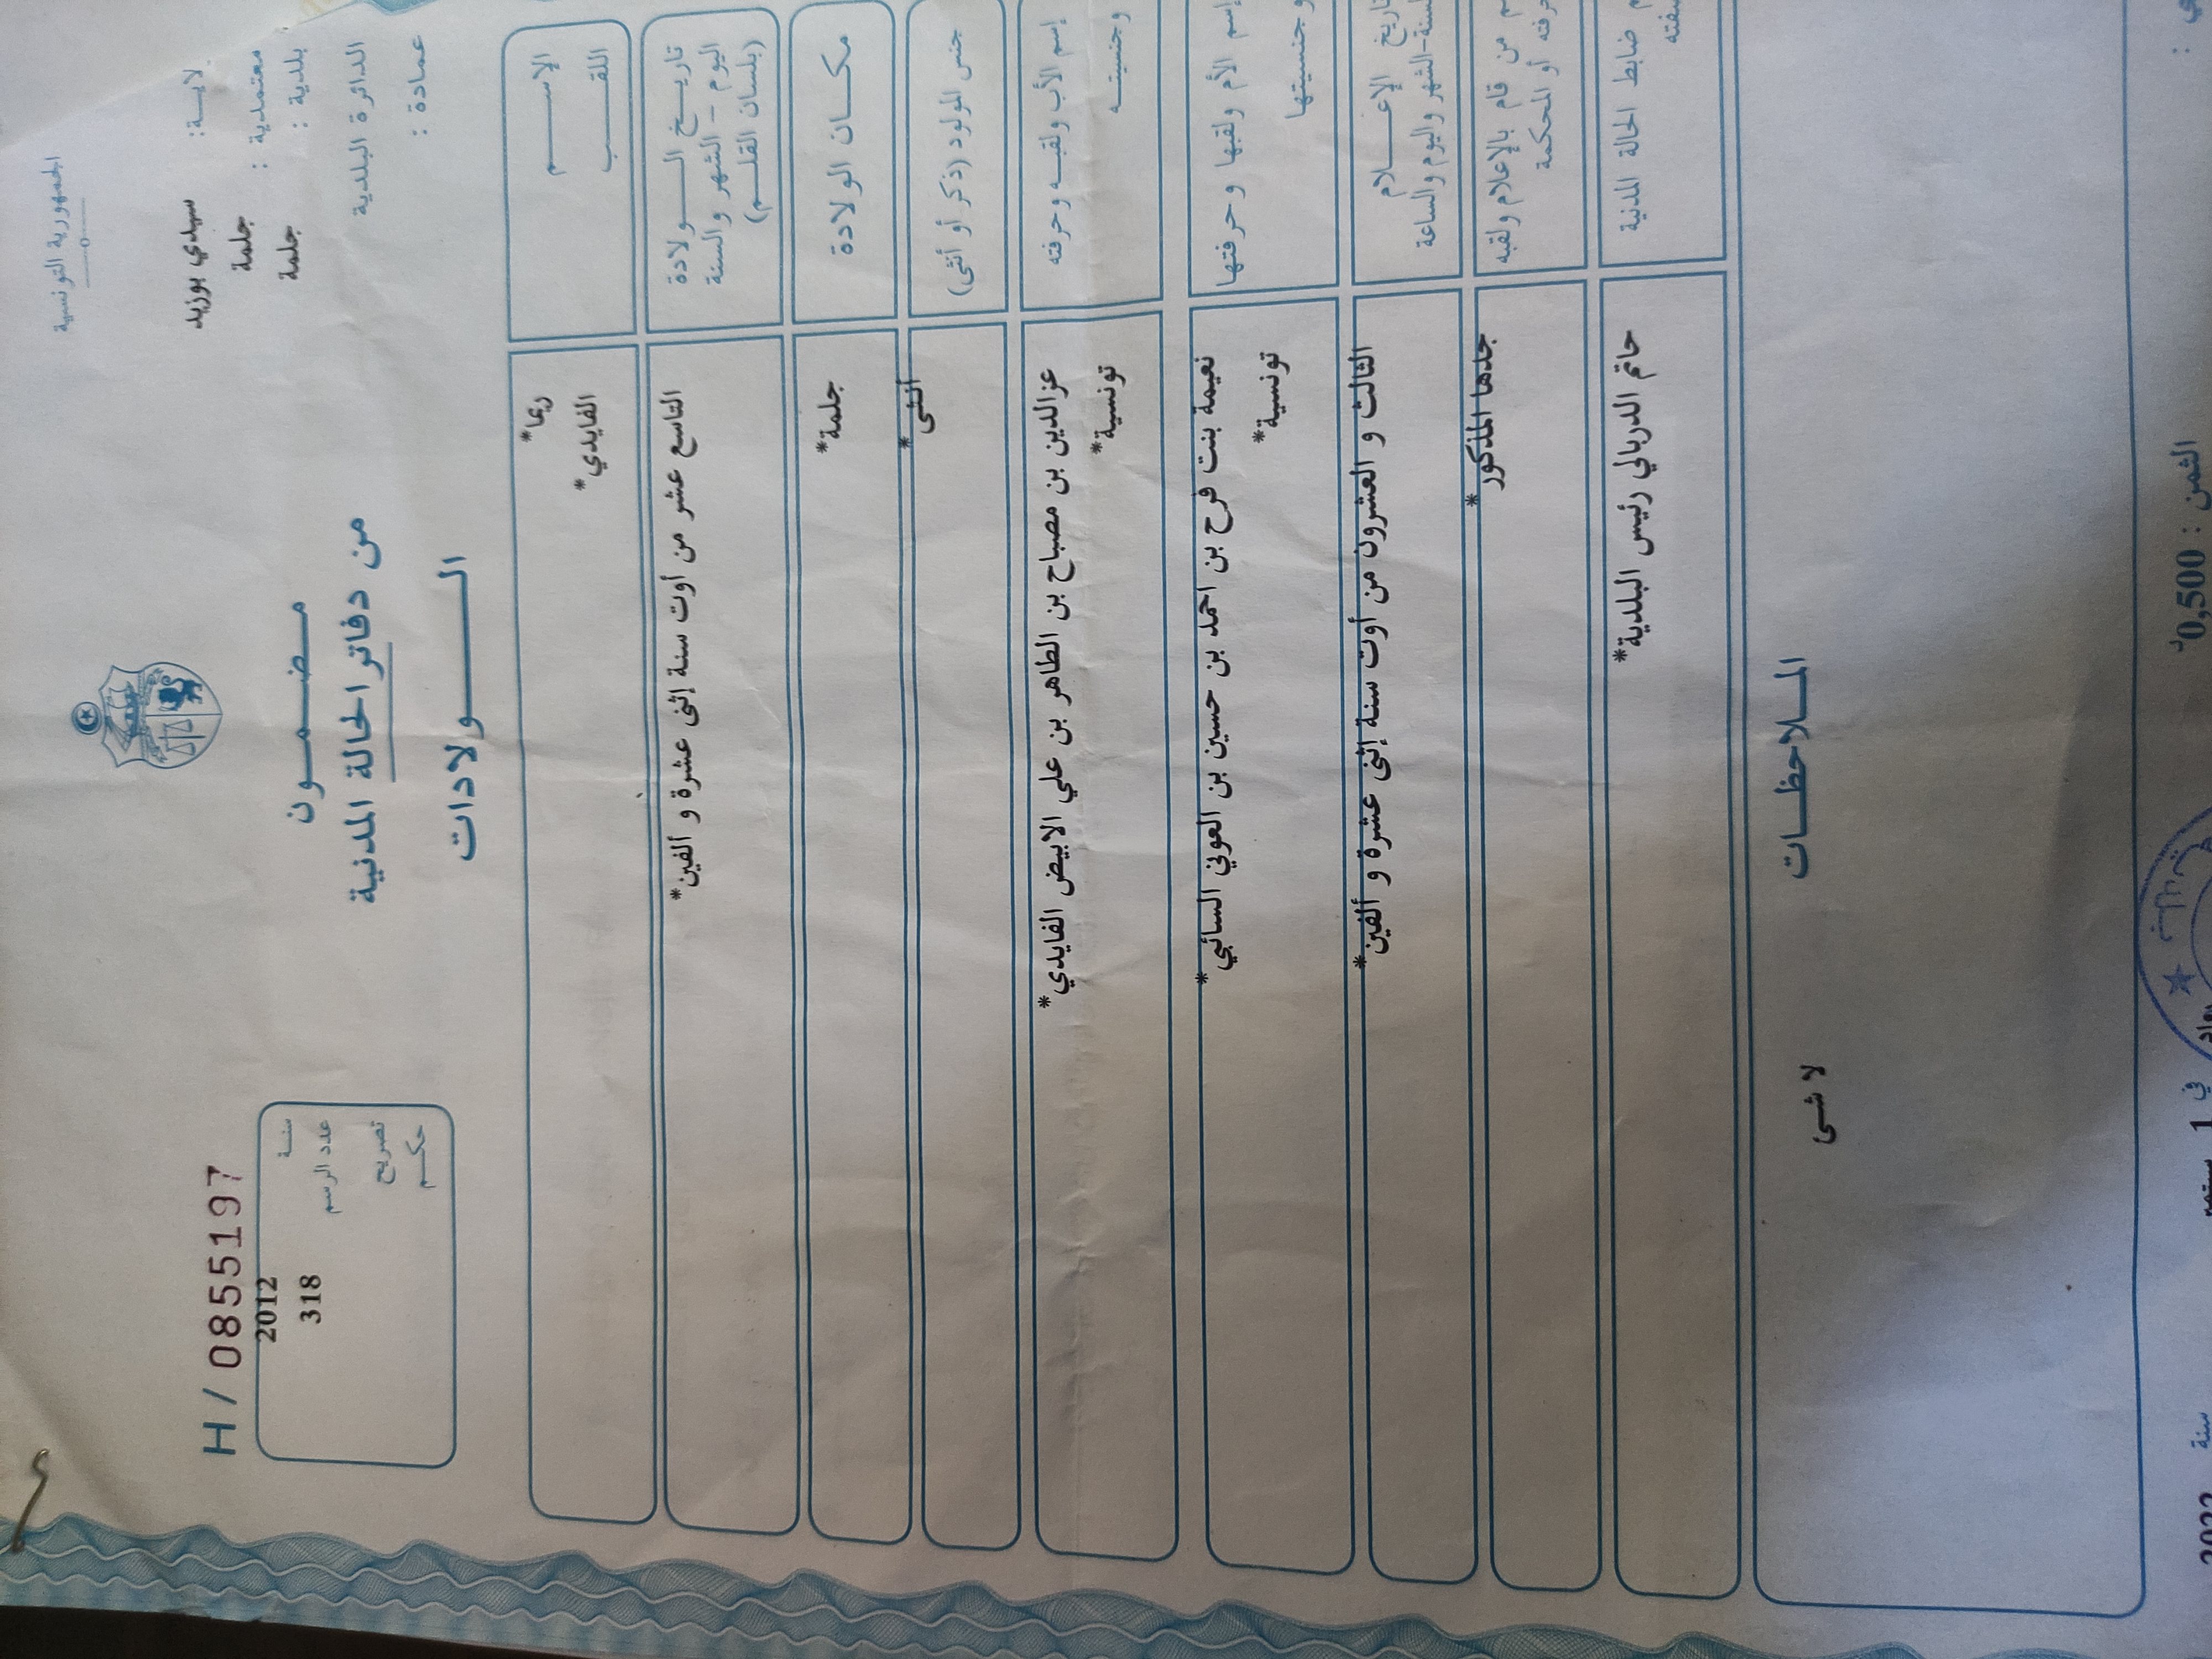 الجمهورية التونسية
لايـة: سيدي بوزيد
معتمدية : جلمة
بلدية : جلمة
الدائرة البلدية
عمادة :
H / 0855197
سنـة 2012
عدد الرسم 318
تصريح
حكـم
مـضـمـون
من دفاتر الحالة المدنية
الـولادات
الإسـم ريما*
اللقـب الفايدي*
تاريـخ الـولادة
اليوم - الشهر والسنة
(بلسان القلـم)
التاسع عشر من أوت سنة إثنى عشرة و ألفين*
مكـان الولادة جلمة*
جنس المولود (ذكر أو أنثى) أنثى*
إسم الأب ولقبـه وحرفته عزالدين بن مصباح بن الطاهر بن علي الابيض الفايدي*
وجنسيتـه تونسية*
إسم الأم ولقبها وحرفتها نعيمة بنت فرح بن احمد بن حسين بن العوني السائبي*
وجنسيتها تونسية*
تاريخ الإعـلام
السنة-الشهر واليوم والساعة
الثالث و العشرون من أوت سنة إثنى عشرة و ألفين*
من قام بالإعلام ولقبه
حرفته أو المحكمة
جدها المذكور*
ضابط الحالة المدنية حاتم الدربالي رئيس البلدية*
المـلاحظـات
لا شى
الثمن : 0,500 د
في 1 سبتمبر سنة 2022